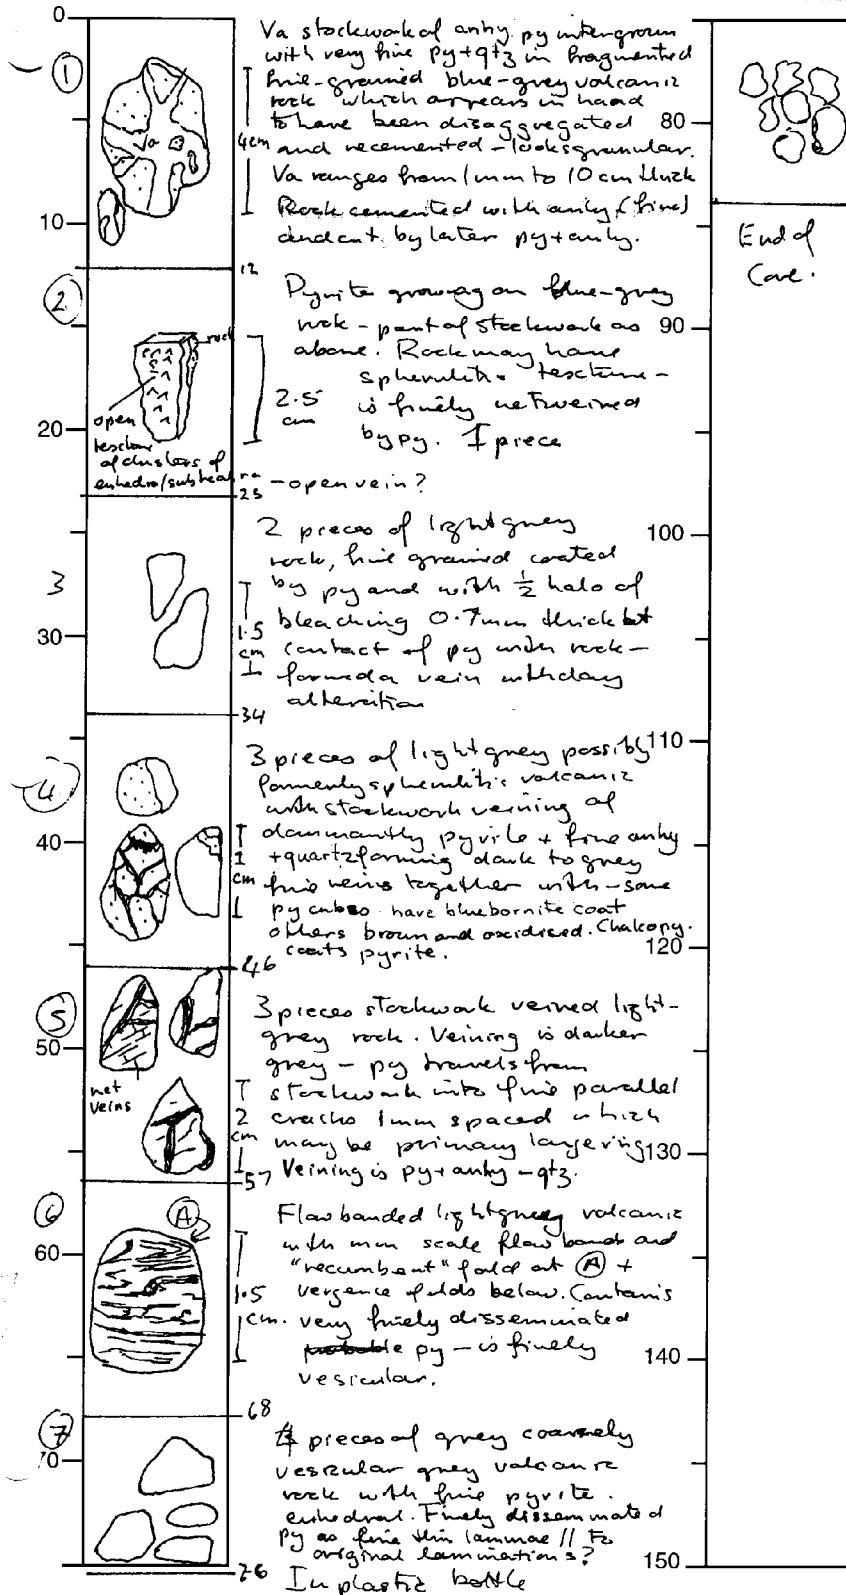 0
Va stockwork of anhy. py intergrown
with very fine py+qtz in fragmented
fine-grained blue-grey volcanic
rock which appears in hand
to have been disaggregated
and recemented - looks granular.
Va ranges from 1mm to 10 cm thick
Rock cemented with anhy (fine)
and cut by later py+anhy.
1
Va
4cm
10
12
2
Pyrite growing on blue-grey
rock - part of stockwork as
above. Rock may have
spherulitic texture -
is finely netveined
by py. 1 piece
rock
2.5
cm
20
open
texture
of clusters of
euhedra/subhedra
23
- open vein?
2 pieces of light grey
rock, fine grained coated
by py and with 1/2 halo of
bleaching 0.7mm thick at
contact of py with rock -
formed a vein with clay
alteration
3
1.5
cm
30
34
3 pieces of light grey possibly
formerly spherulitic volcanic
with stockwork veining of
dominantly pyrite + fine anhy
+quartz forming dark to grey
fine veins together with - some
py cubes have blue bornite coat
others brown and oxidised. Chalcopy.
coats pyrite.
4
40
1
cm
46
5
3 pieces stockwork veined light-
grey rock. Veining is darker
grey - py travels from
stockwork into fine parallel
cracks 1mm spaced which
may be primary layering
Veining is py+anhy-qtz.
50
net
veins
2
cm
57
6
A
Flow banded light grey volcanic
with mm scale flow bands and
"recumbent" fold at A +
vergence folds below. Contains
very finely disseminated
py - is finely
vesicular.
60
1.5
cm.
68
7
4 pieces of grey coarsely
vesicular grey volcanic
rock with fine pyrite.
euhedral. Finely disseminated
py as fine thin laminae // to
original laminations?
70
76
In plastic bottle
80
End of
Core.
90
100
110
120
130
140
150